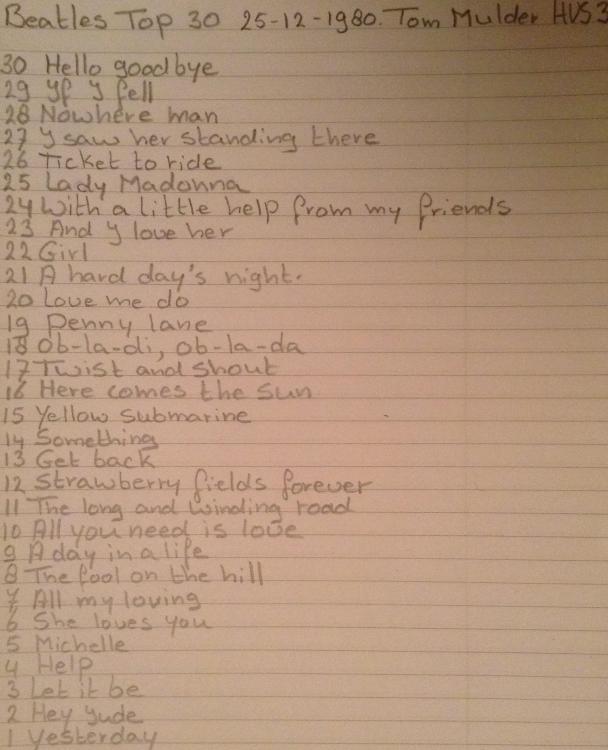 Beatles Top 30 25-12-1980. Tom Mulder HVS3
30 Hello goodbye
29 Yf Y fell
28 Nowhere man
27 Y saw her standing there
26 Ticket to ride
25 Lady Madonna
24 With a little help from my friends
23 And Y love her
22 Girl
21 A hard day's night.
20 Love me do
19 Penny lane
18 Ob-la-di, ob-la-da
17 Twist and shout
16 Here comes the sun
15 Yellow submarine
14 Something
13 Get back
12 Strawberry fields forever
11 The long and winding road
10 All you need is love
9 A day in a life
8 The fool on the hill
7 All my loving
6 She loves you
5 Michelle
4 Help
3 Let it be
2 Hey Yude
1 Yesterday